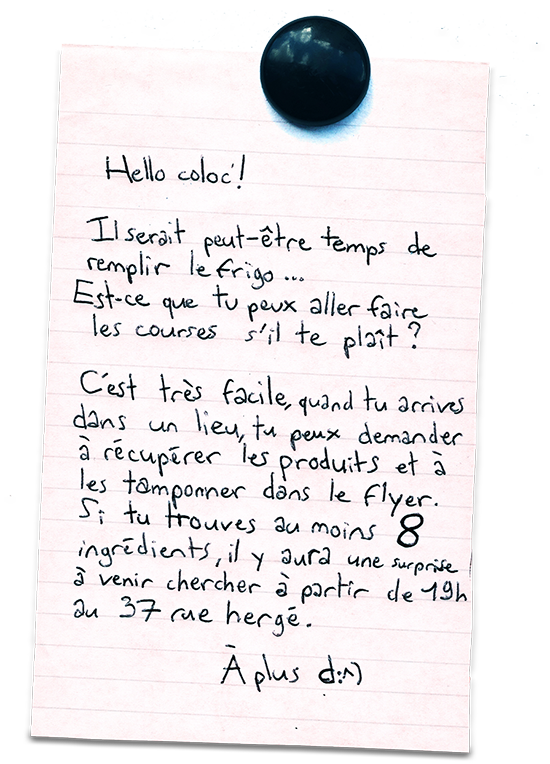 Hello coloc'!
Il serait peut-être temps de
remplir le frigo...
Est-ce que tu peux aller faire
les courses s'il te plaît ?
C'est très facile, quand tu arrives
dans un lieu, tu peux demander
à récupérer les produits et à
les tamponner dans le flyer.
Si tu trouves au moins 8
ingrédients, il y aura une surprise
à venir chercher à partir de 19h
au 37 rue hergé.
À plus d:^)